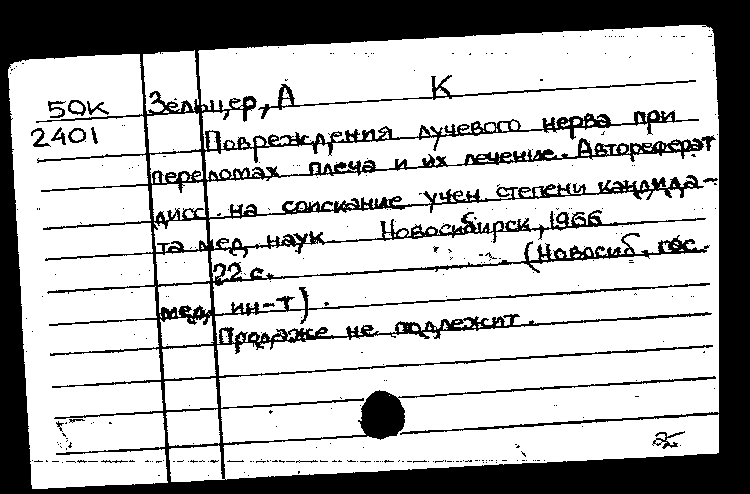 50К Зельцер, А К
2401 Повреждения лучевого нерва при
переломах плеча и их лечение. Автореферат
дисс. на соискание учен. степени кандида-
та мед. наук Новосибирск, 1966
22 с. (Новосиб. гос.
мед. ин-т).
Продаже не подлежит.